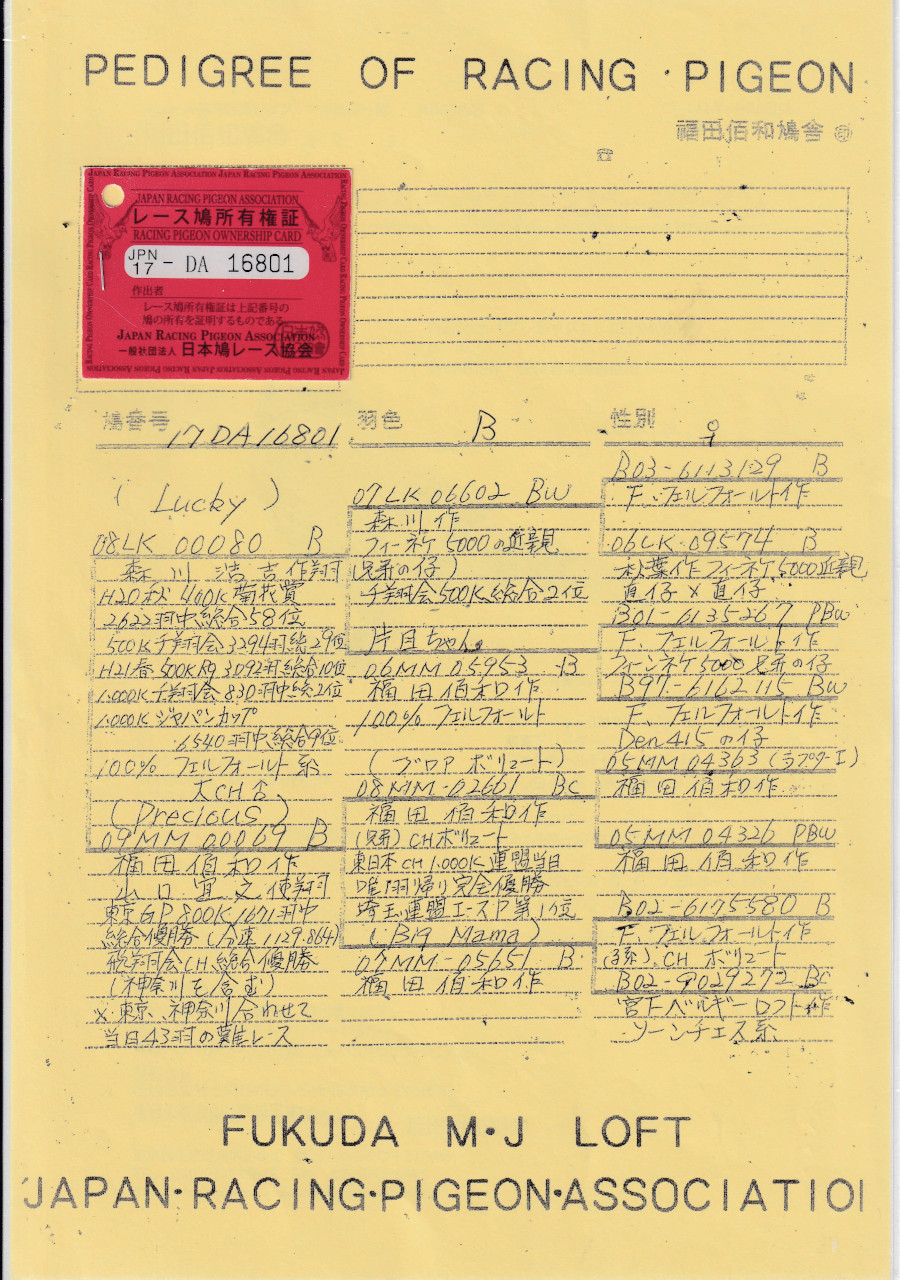 PEDIGREE OF RACING・PIGEON
福田佰和鳩舎 ㊞
☎
JAPAN RACING PIGEON ASSOCIATION JAPAN RACING PIGEON ASSOCIATION
JAPAN RACING PIGEON ASSOCIATION
レース鳩所有権証
RACING PIGEON OWNERSHIP CARD
JPN 17 - DA 16801
作出者
レース鳩所有権証は上記番号の
鳩の所有を証明するものである
JAPAN RACING PIGEON ASSOCIATION
一般社団法人 日本鳩レース協会
鳩番号 17DA16801
羽色 B
性別 ♀
(Lucky)
08LK 00080 B
森川浩吉作翔
H20秋 400K菊花賞
2622羽中、総合58位
500K千翔会3294羽総29位
H21春 500K 3092羽総合10位
1.000K千翔会830羽中総2位
1.000Kジャパンカップ
6540羽中、総合9位
100% フェルフォールト系
大CH
(Precious)
09MM 00069 B
福田佰和作
山口宜文使翔
東京GP800K1671羽中
総合優勝(分速1129.864)
翔会CH、総合優勝
(神奈川も含む)
×東京、神奈川合わせて
当日43羽の難レース
07LK 06602 BW
森川作
フィーネケ5000の近親
(兄弟の仔)
千翔会500K、総合2位
片目ちゃん
06MM 05953 B
福田佰和作
100% フェルフォールト
(ブロア ボリュート)
08MM-02661 BC
福田佰和作
(兄弟)CHボリュート
東日本CH1.000K連盟当日
唯一羽帰り完全優勝
埼玉連盟エースP第1位
(Big Mama)
07MM-05651 B
福田佰和作
B03-6113129 B
F、フェルフォールト作
06LK 09574 B
秋葉作フィーネケ5000近親
直仔×直仔
B01-6135267 PBW
F、フェルフォールト作
フィーンネケ5000兄弟の仔
B97-6162115 BW
F、フェルフォールト作
Den 415の仔
05MM 04363 (ラプターI)
福田佰和作
05MM 04326 PBW
福田佰和作
B02-6175580 B
F、フェルフォールト作
CH ボリュート
B02-9029272 BC
宮下ベルギーロフト作
ソーンチェス系
FUKUDA M・J LOFT
JAPAN・RACING・PIGEON・ASSOCIATIO